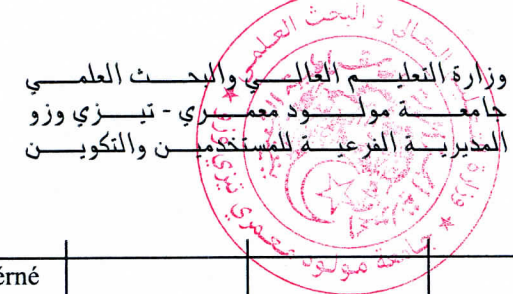 وزارة التعليم العالي والبحث العلمي
جامعة مولود معمري - تيزي وزو
المديرية الفرعية للمستخدمين والتكوين
العالي و البحث العلمي
وزارة
جامعة مولود معمري تيزي وزو
érné